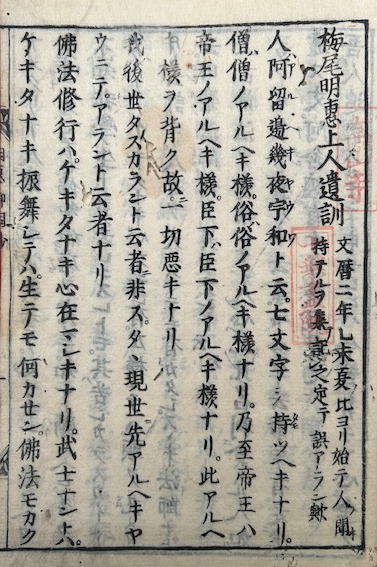 栂尾明惠上人遺訓 文暦二年乙未夏比ヨリ始テ人聞
持テルヲ集 之定テ誤アラン歟
人ハ阿留邊幾夜宇和ト云七文字ヲ持ツヘキナリ。
僧ハ僧ノアルヘキ樣。俗ハ俗ノアルヘキ樣ナリ。乃至帝王ハ
帝王ノアルヘキ樣。臣下ハ臣下ノアルヘキ樣ナリ。此アルヘ
キ樣ヲ背ク故ニ一切惡キナリ
我ハ後世タスカラント云者ニ非ス。タヽ現世ニ先アルヘキヤ
ウニテアラント云者ナリ
佛法修行ハ。ケキタナキ心在マシキナリ。武士ナントハ。
ケキタナキ振舞シテハ。生テモ何カセン。佛法モカク